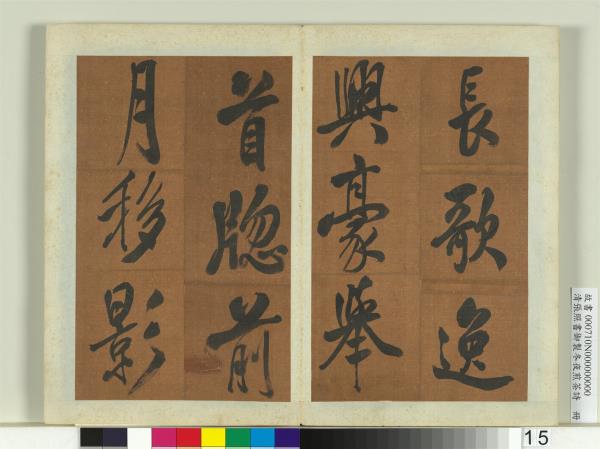 長歌逸
興豪舉
首牎前
月移影
故書000710N000000000
清張照書御製冬夜煎茶詩 冊
15